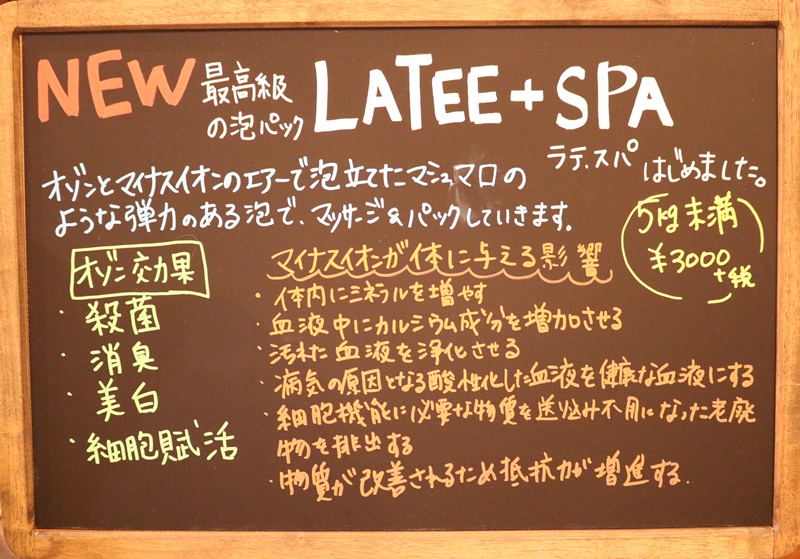 NEW 最高級の泡パック LATEE+SPA
ラテ.スパ はじめました。
オゾンとマイナスイオンのエアーで泡立てたマシュマロの
ような弾力のある泡で、マッサージ&パックしていきます。
5kg未満
¥3000
+税
オゾン効果
・殺菌
・消臭
・美白
・細胞賦活
マイナスイオンが体に与える影響
・体内にミネラルを増やす
・血液中にカルシウム成分を増加させる
・汚れた血液を浄化させる
・病気の原因となる酸性化した血液を健康な血液にする
・細胞機能に必要な物質を送り込み不用になった老廃
物を排出する
・物質が改善されるため抵抗力が増進する.